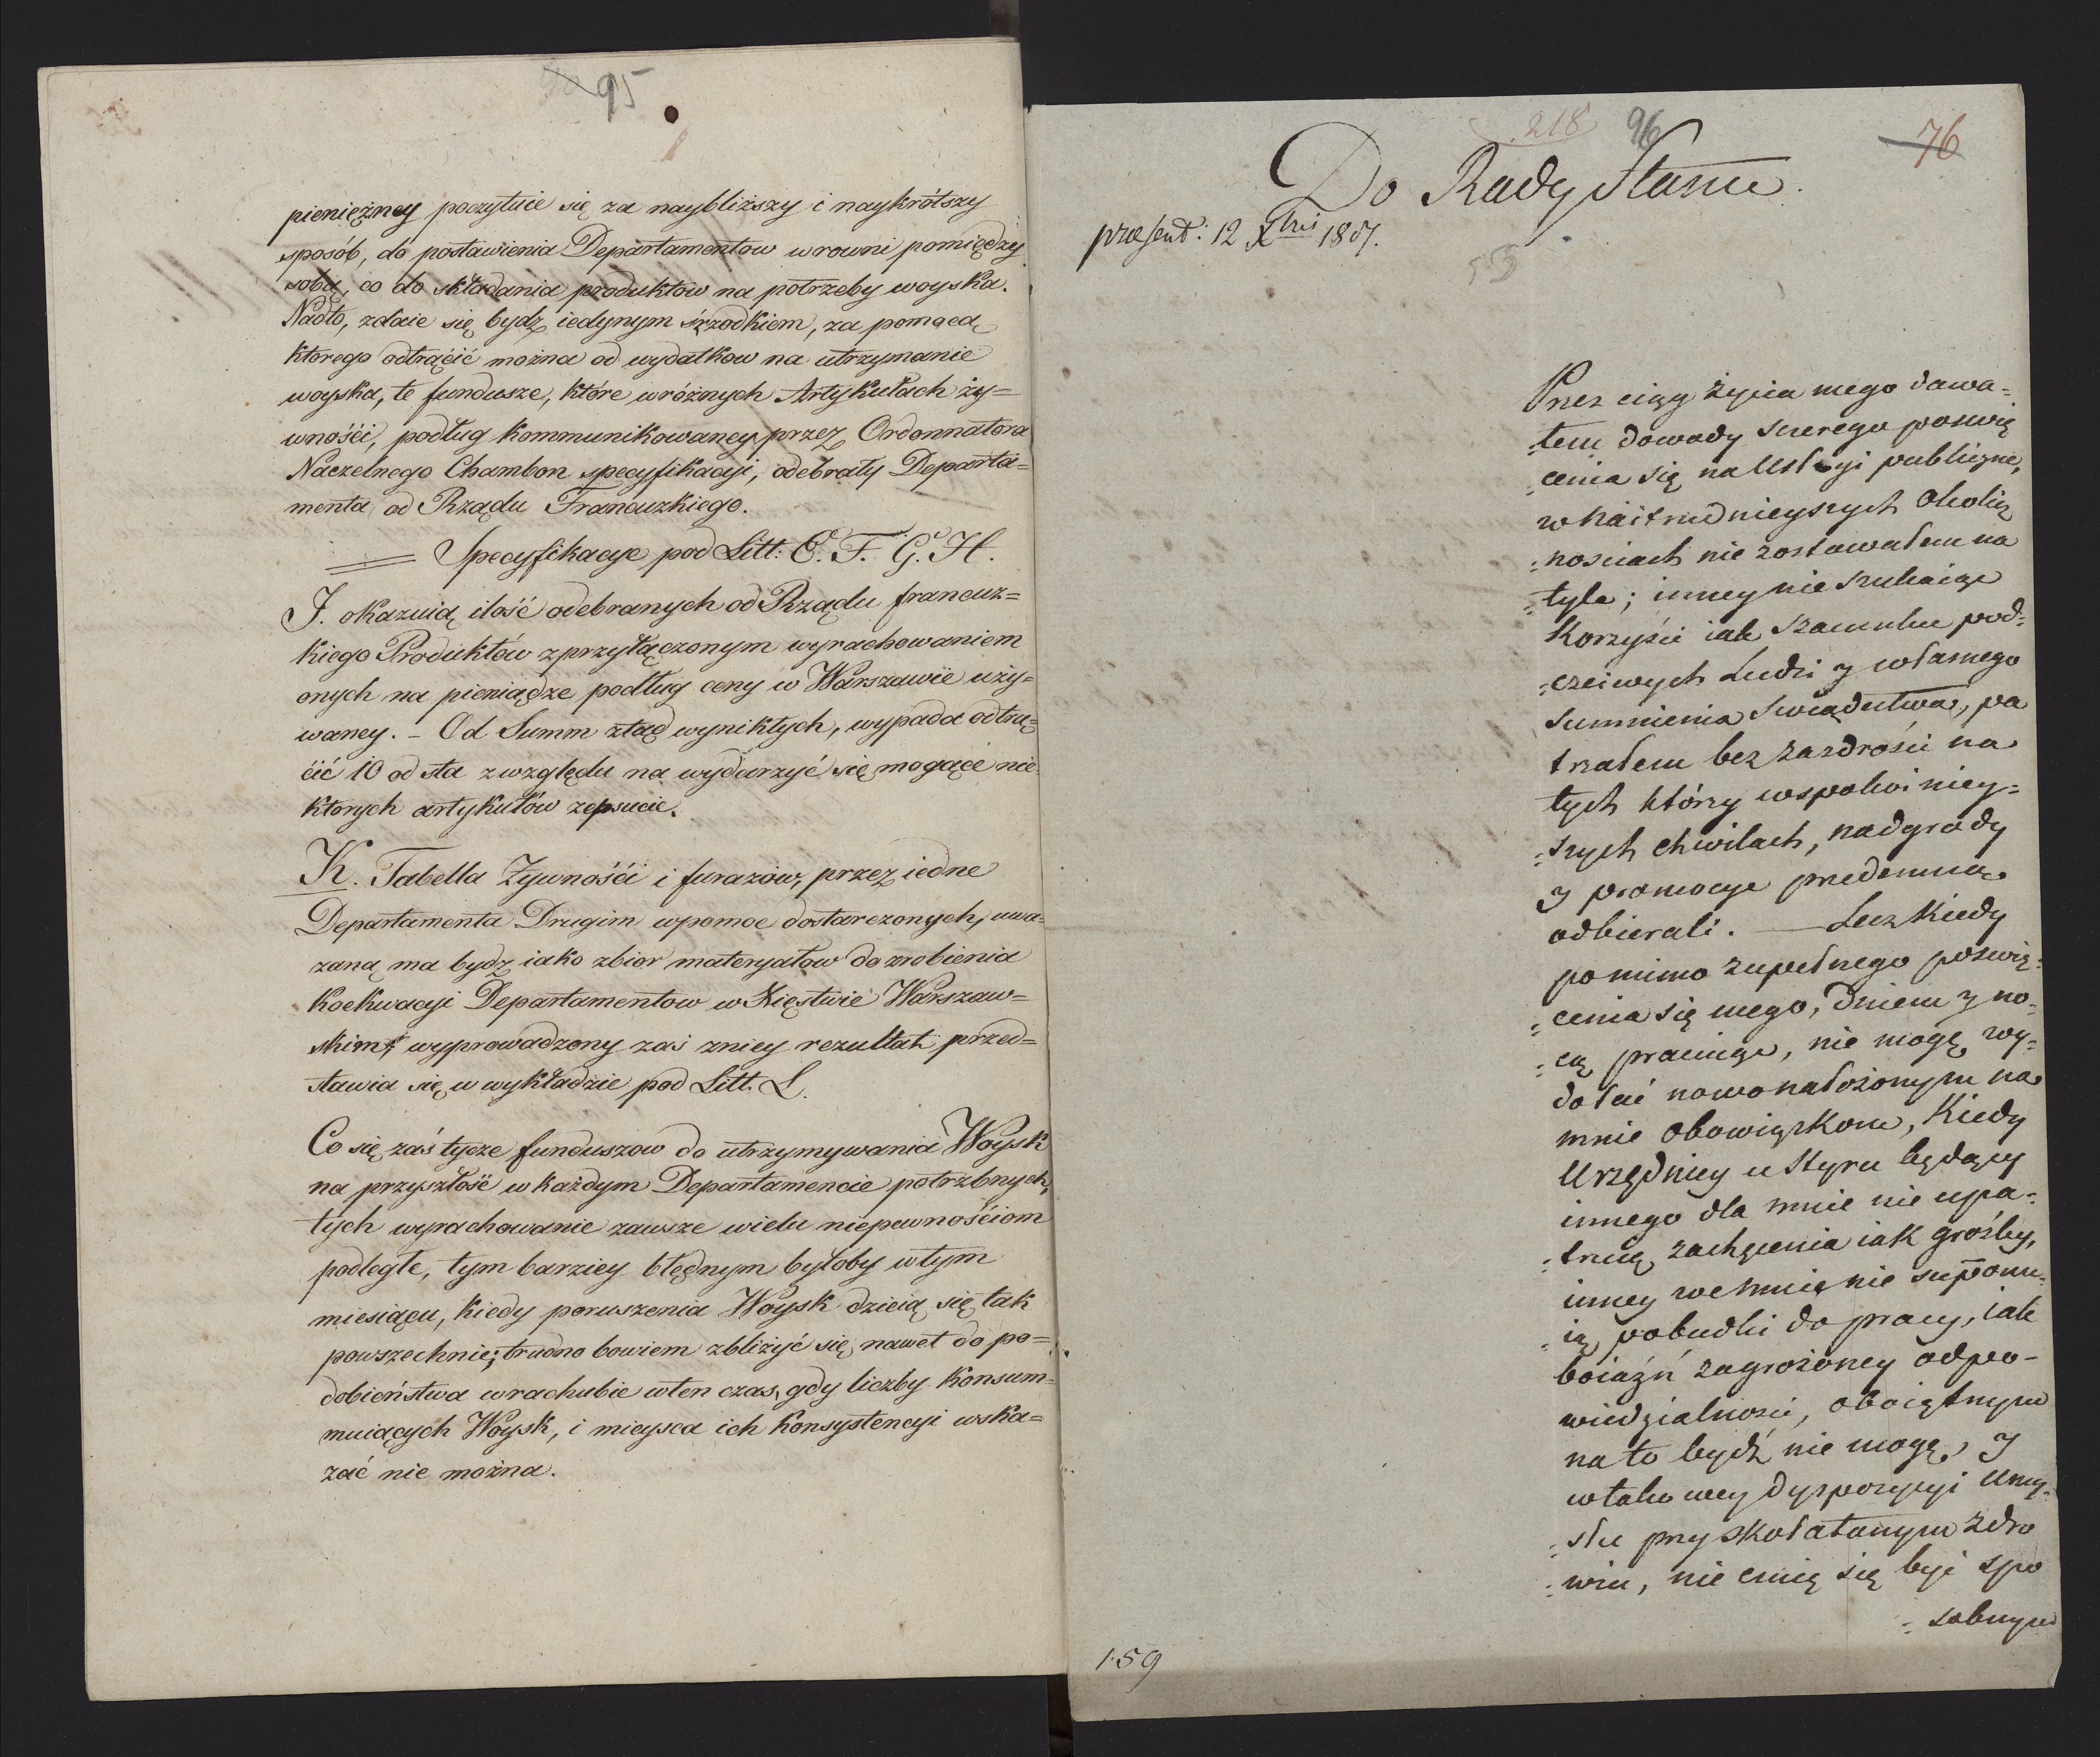 95
pieniężney poczytuie się za naybliższy i naykrótszy
sposób, do postawienia Departamentow w rowni pomiędzy
sobą, co do składania produktow na potrzeby woyska.
Nadto, zdaie się bydz iedynym śrzodkiem, za pomocą
ktorego odtrącić można od wydatkow na utrzymanie
woyska, te fundusze, które w różnych Artykułach ży=
wnośći, podług kommunikowaney przez Ordonnatora
Naczelnego Chambon specyfikacyi, odebrały Departa=
menta od Rządu Francuzkiego.
Specyfikacye pod Litt: E. F. G. H.
J. okazuią ilość odebranych od Rządu francuz=
kiego Produktów z przyłączonym wyrachowaniem
onych na pieniądze podług ceny w Warszawie uży=
waney. – Od Summ ztąd wynikłych, wypada odtrą=
ćić 10 od sta z względu na wydarzyć się mogące nie
ktorych artykułów zepsucie.
K. Tabella Żywnośći i furazów, przez iedne
Departamenta Drugim w pomoc dostarczonych, uwa=
zaną ma bydz iako zbior materyałow do zrobienia
Koekwacyi Departamentow w Xięstwie Warszaw=
skim; wyprowadzony zaś zniey rezultat przed=
stawia się w wykładzie pod Litt. L.
Co się zaś tycze funduszow do utrzymywania Woysk
na przyszłość w każdym Departamencie potrzbnych,
tych wyrachowanie zawsze wielu niepewnośćiom
podległe, tym barziey błędnym byłoby w tym
miesiącu, kiedy poruszenia Woysk dzieią się tak
powszechnie; trudno bowiem zbliżyć się nawet do po=
dobieństwa w rachubie w ten czas, gdy liczby Konsum=
muiących Woysk, i mieysca ich Konsystencyi wska=
zać nie można.
218 96 76
Do Rady Stanu.
præsent: 12 Xbris 1807.
Przez ciąg życia mego dawa=
łem dowody szczerego poswię
=cenia się na Usługi publiczne,
w naitrudnieyszych Okolicz
=nosciach nie zostawałem na
=tyle; inney nie szukaiąc
Korzyści iak szacunku pod=
=czciwych Ludzi y własnego
sumnienia swiadectwa, pa
trzałem bez zazdrości na
tych którzy w spokoiniey=
=szych chwilach, nadgrody
y promocye przedemną
odbierali. — Lecz Kiedy
pomimo zupełnego poswię=
=cenia się mego, dniem y no=
=cą pracuiąc, nie mogę wy=
dołać nowo nałożonym na
mnie obowiązkom, Kiedy
Urzędnicy u Steru będący
innego dla mnie nie upa=
=truią zachęcenia iak groźby,
inney we mnie nie supponu=
=ią pobudki do pracy, iak
boiaźń zagrożoney odpo-
wiedzialnosci, oboiętnym
na to bydź nie mogę, y
w takowey dyspozycyi Umy=
=słu przy skołatanym zdro
=wiu, nie czuię się byc spo
=sobnym
159